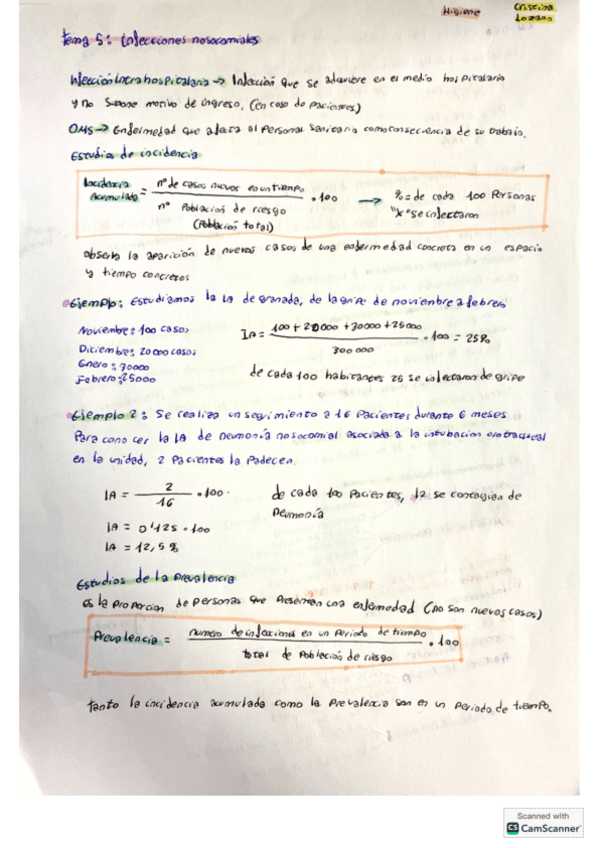 Higiene
Cristina Lozano
Tema 5: Infecciones nosocomiales
Infección intrahospitalaria → Infección que se adquiere en el medio hospitalario
y no supone motivo de ingreso, (en caso de pacientes)
OMS → Enfermedad que afecta al personal sanitario como consecuencia de su trabajo.
Estudio de incidencia
Incidencia Acumulada = nº de casos nuevos en un tiempo / nº Población de riesgo (Población total) • 100 → % = de cada 100 Personas "x" se infectaron
observa la aparición de nuevos casos de una enfermedad concreta en un espacio
y tiempo concretos
Ejemplo: Estudiamos la IA de granada, de la gripe de noviembre a febrero
Noviembre: 100 casos
Diciembre: 20000 casos
Enero: 30000
Febrero: 25000
IA = 100 + 20000 + 30000 + 25000 / 300 000 • 100 = 25%
de cada 100 habitantes 25 se infectaron de gripe
Ejemplo 2: Se realiza un seguimiento a 16 pacientes durante 6 meses
Para conocer la IA de neumonía nosocomial asociada a la intubacion endotraqueal
en la unidad, 2 Pacientes la Padecen.
IA = 2 / 16 • 100
IA = 0'125 • 100
IA = 12,5 %
de cada 100 Pacientes, 12 se contagian de
neumonía
Estudios de la Prevalencia
es la proporcion de personas que presentan una enfermedad (no son nuevos casos)
Prevalencia = numero de infecciones en un Periodo de tiempo / total de Población de riesgo • 100
tanto la incidencia acumulada como la Prevalencia son en un Periodo de tiempo.
Scanned with
CS CamScanner